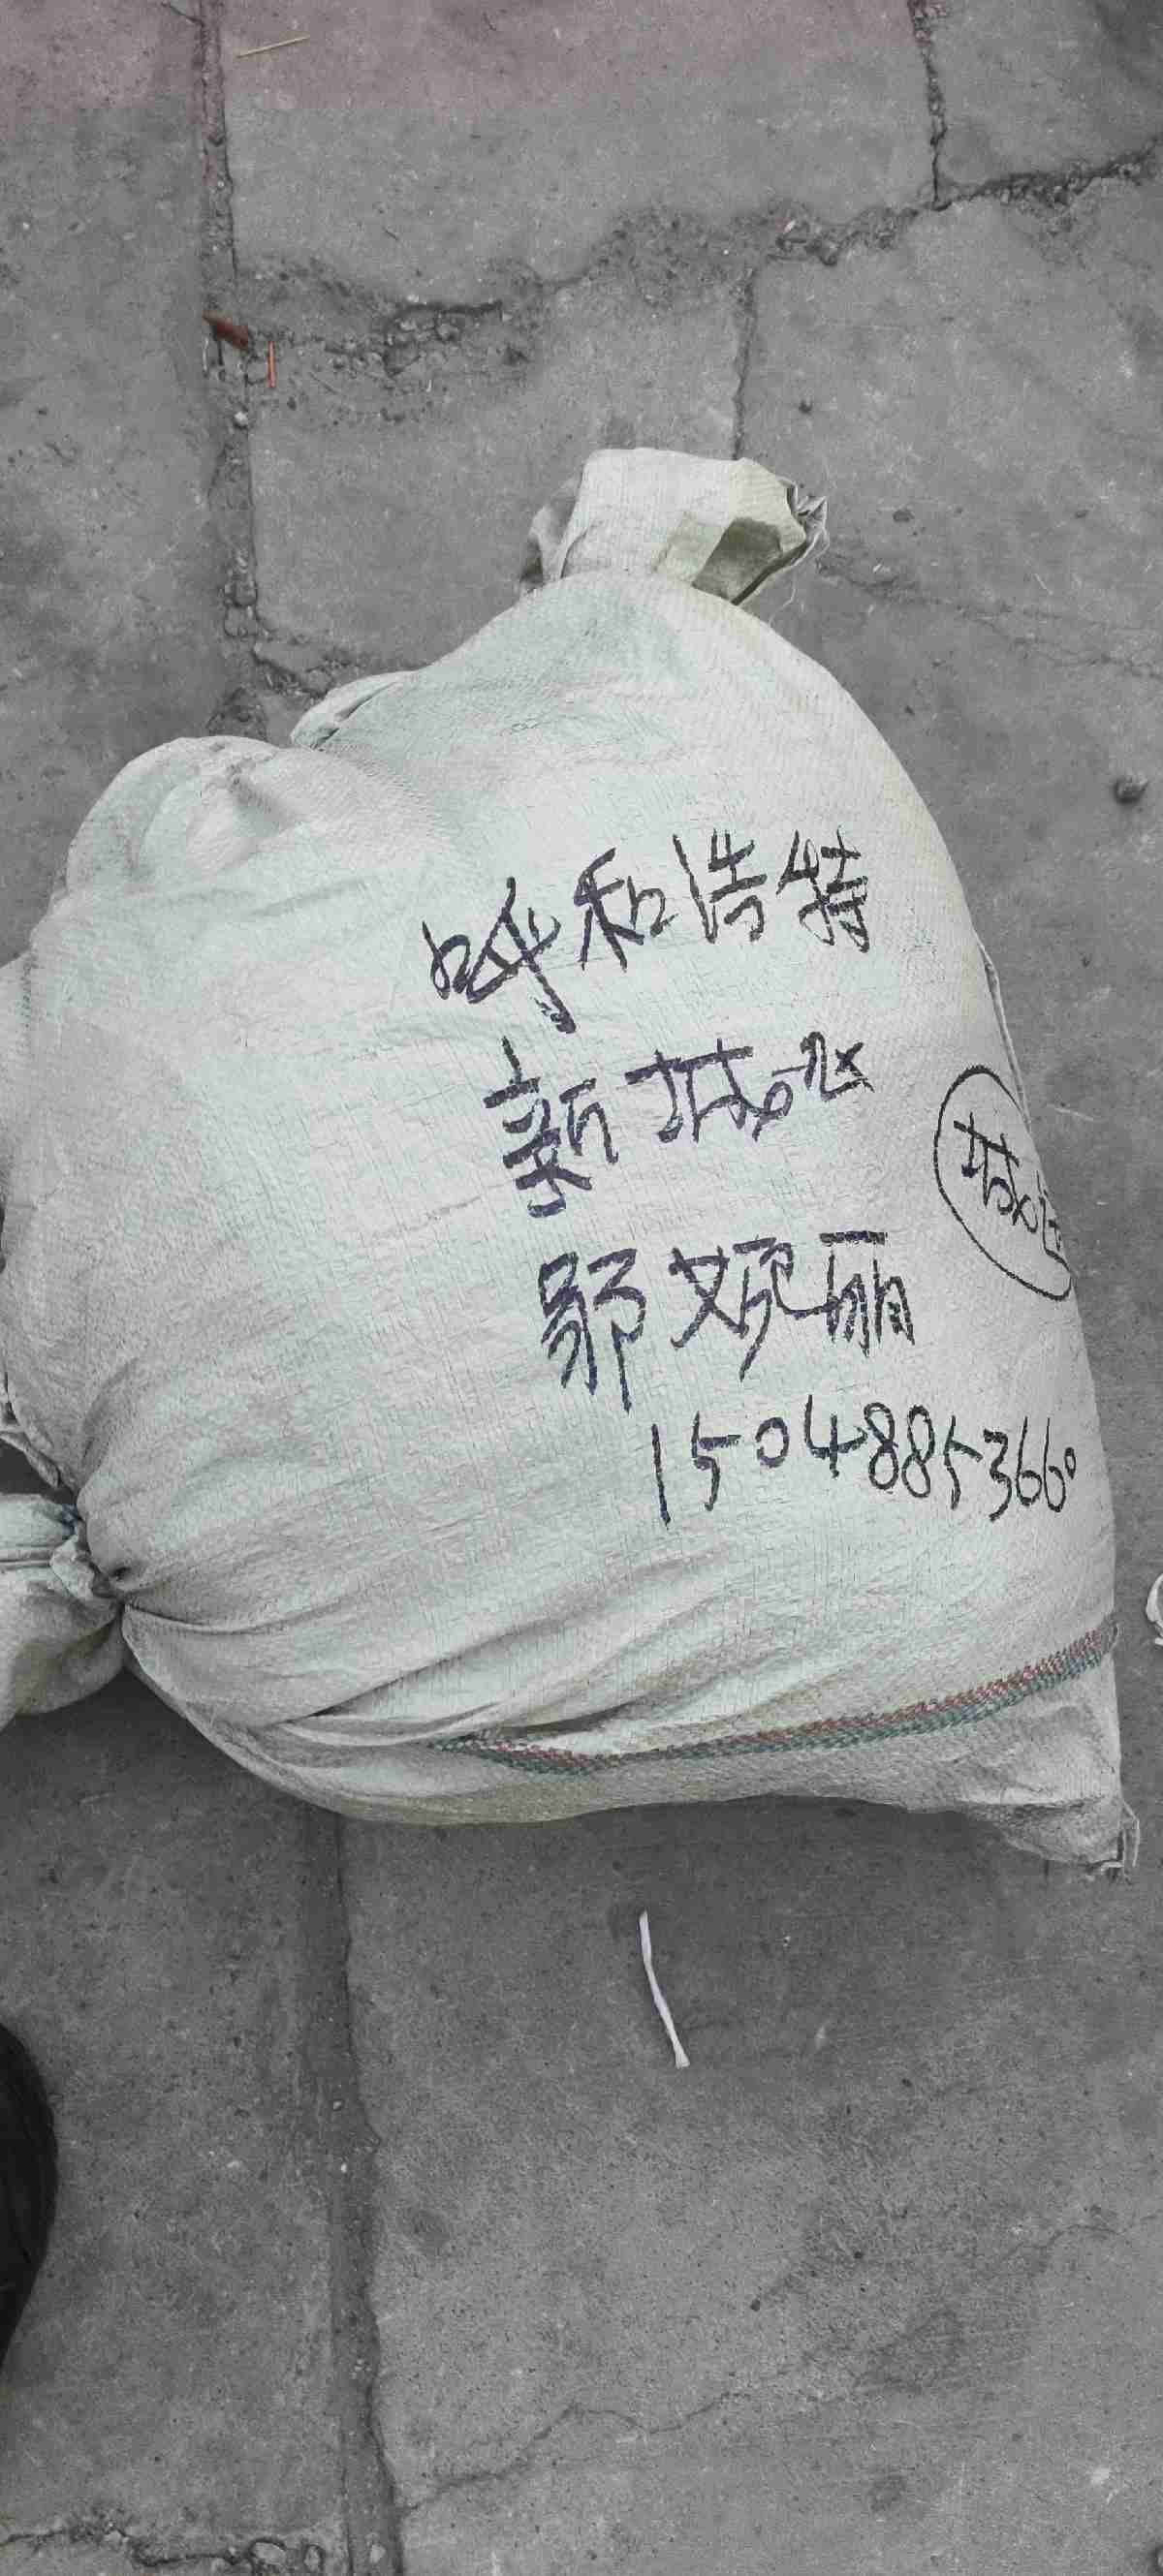 呼和浩特
新城区
鄂婉丽
15048853660